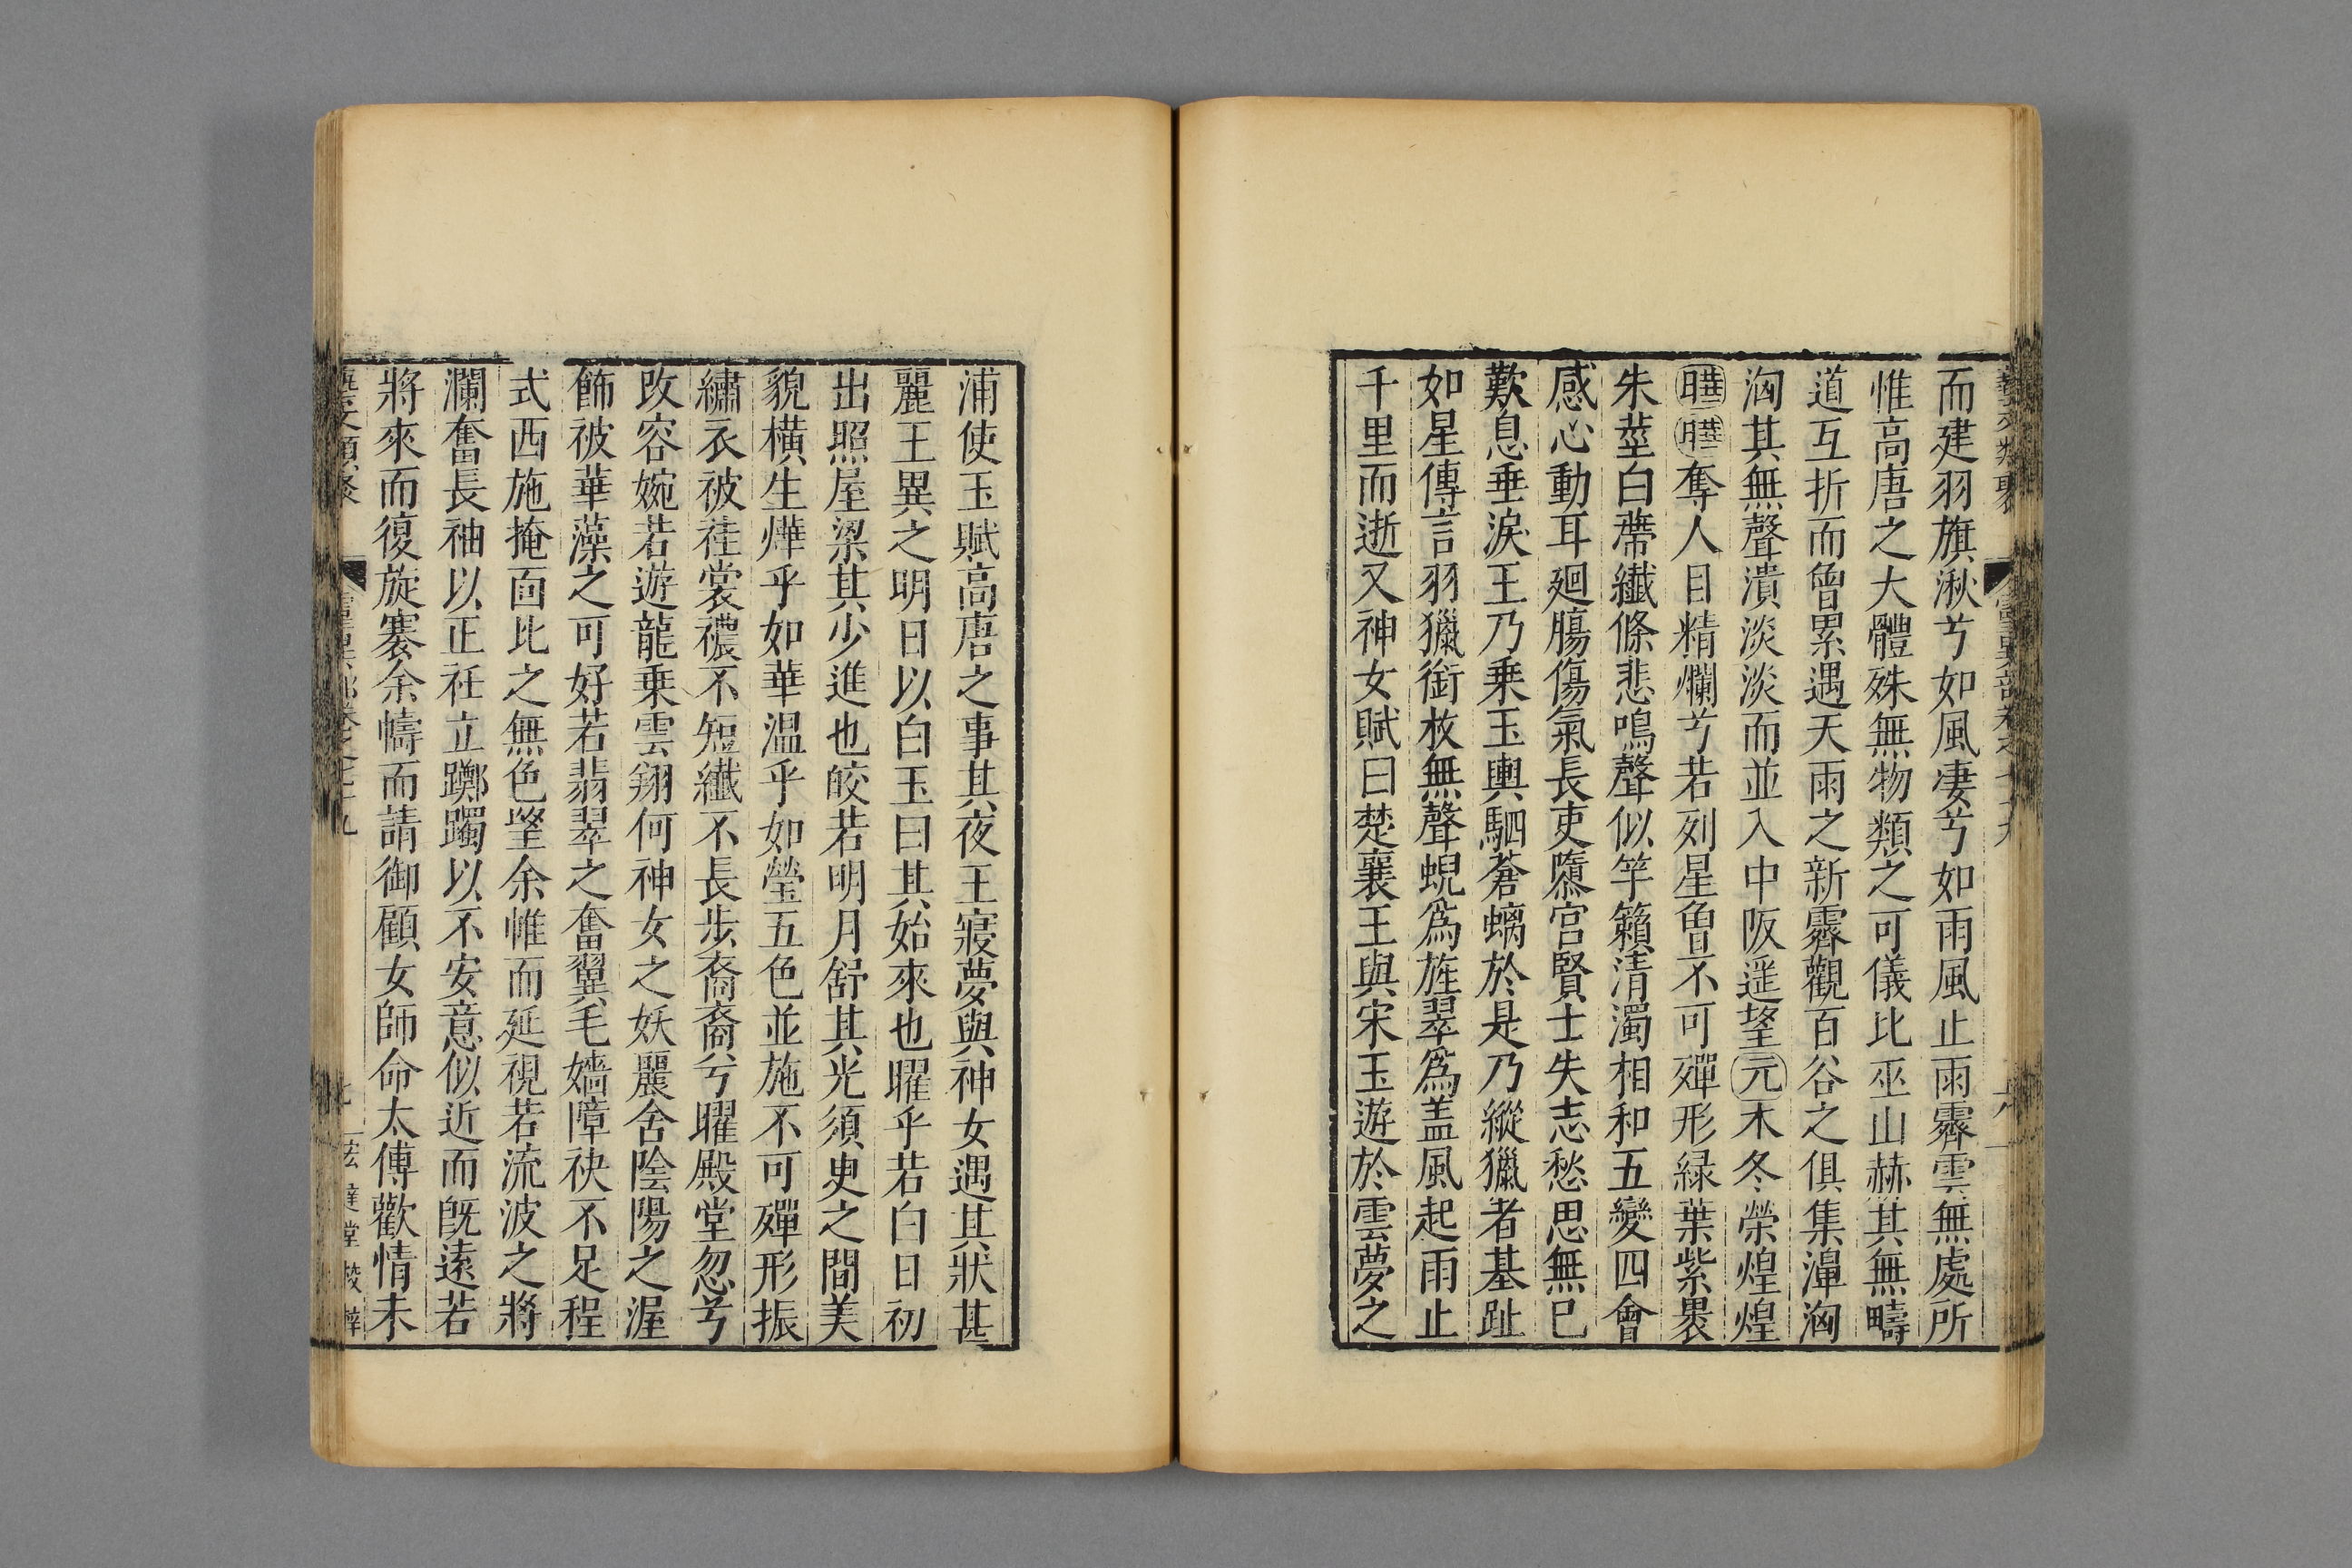 而建羽旗湫兮如風凄兮如雨風止雨霽雲無處所
惟高唐之大體殊無物類之可儀比巫山赫其無疇
道互折而曾累遇天雨之新霽觀百谷之俱集潬洶
洶其無聲潰淡淡而並入中阪遥望元木冬榮煌煌
曄曄奪人目精爛兮若列星曾不可殫形緑葉紫裹
朱莖白蔕纖條悲鳴聲似竽籟清濁相和五變四會
感心動耳廻膓傷氣長吏隳官賢士失志愁思無已
歎息垂淚王乃乗玉輿駟蒼螭於是乃縱獵者基趾
如星傳言羽獵銜枚無聲蜺爲旌翠爲盖風起雨止
千里而逝又神女賦曰楚襄王與宋玉遊於雲夢之
浦使玉賦高唐之事其夜王寢夢與神女遇其狀甚
麗王異之明日以白玉曰其始來也曜乎若白日初
出照屋梁其少進也皎若明月舒其光須臾之間美
貌橫生燁乎如華温乎如瑩五色並施不可殫形振
繡衣被袿裳襛不短纖不長步裔裔兮曜殿堂忽兮
改容婉若遊龍乗雲翔何神女之妖麗含陰陽之渥
飾被華藻之可好若翡翠之奮翼毛嬙障袂不足程
式西施掩面比之無色望余帷而延視若流波之將
瀾奮長袖以正衽立躑躅以不安意似近而旣遠若
將來而復旋褰余幬而請御願女師命太傅歡情未